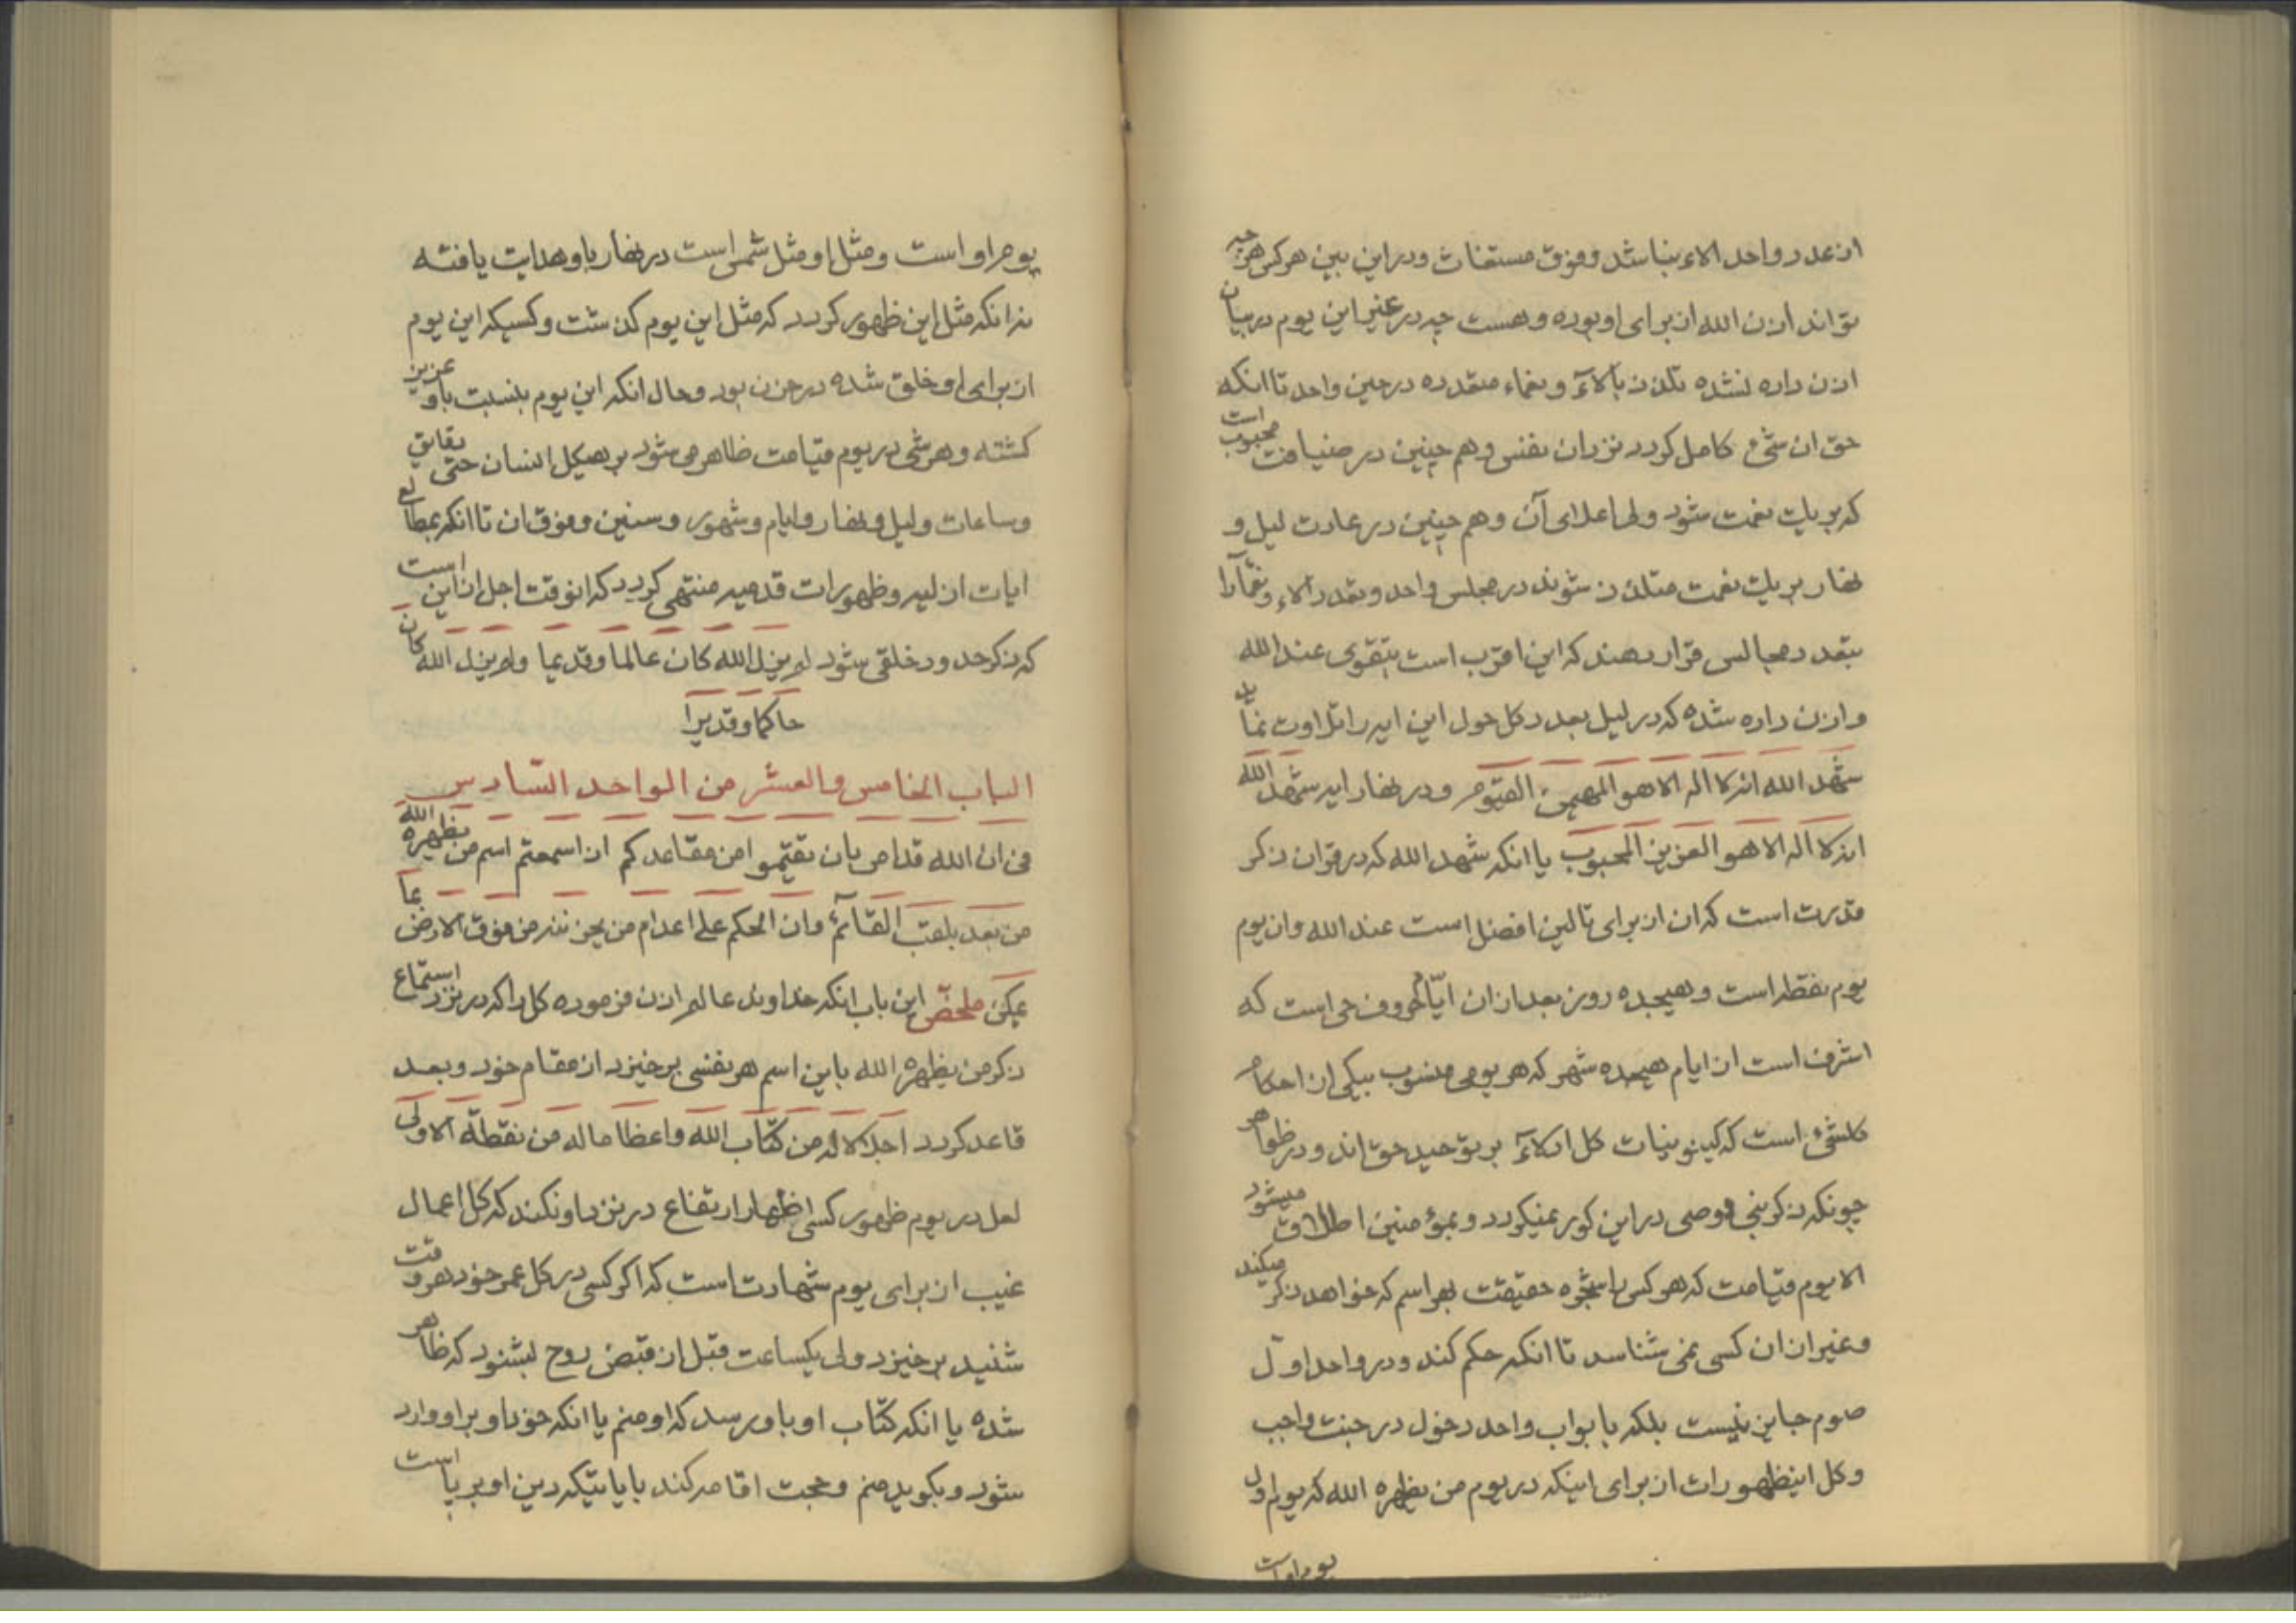 از عدد واحد الاء نباشد و فوق مستغاث و در این بین هر کس هر چه
تواند اذن الله از برای او بوده و هست چه در غیر این یوم در بیان
اذن داده نشده تلذذ بآلاء و نعماء متعدده در حین واحد تا انکه
حق ان شئ کامل کردد نزد ان نفس و هم چنین در ضیافت محبوب است
که بر یک نعمت شود ولی اعلای آن و هم چنین در عادت لیل و
نهار بر یک نعمت متلذذ شوند در مجلس واحد و تعدد آلاء و نعمآ را
بتعدد مجالس قرار دهند که این اقرب است بتقوی عند الله
و اذن داده شده که در لیل بعدد کل حول این ایه را تلاوت نماید
شهد الله انه لا اله الا هو المهیمن القیوم و در نهار ایه شهد الله
انه لا اله الا هو العزیز المحبوب یا انکه شهد الله که در قران ذکر
قدرت است که ان از برای تالین افضل است عند الله و ان یوم
یوم نقطه است و هیجده روز بعد از ان ایام حروف حی است که
اشرف است از ایام هیجده شهر که هر یومی منسوب بیکی از احکام
کلشئ است که کینونیات کل ادلاء بر توحید حق اند و در ظواهر
چونکه ذکر نبی و وصی در این کور نمیکردد و بمؤمنین اطلاق میشود
الا یوم قیامت که هر کس را شجره حقیقت بهر اسم که خواهد ذکر میکند
و غیر از ان کسی نمی شناسد تا انکه حکم کند و در واحد اول
صوم جایز نیست بلکه بابواب واحد دخول در جنت واجب
و کل اینظهورات از برای اینکه در یوم من یظهره الله که یوم اول
یوم او است
یوم او است و مثل او مثل شمس است در نهار باو هدایت یافته
نه انکه مثل این ظهور کردد که مثل این یوم کذشت و کسیکه این یوم
از برای او خلق شده در حزن بود و حال انکه این یوم بنسبت باو عزیز
کشته و هر شئ در یوم قیامت ظاهر می شود بر هیکل انسان حتی دقایق
و ساعات و لیل و نهار و ایام و شهور و سنین و فوق ان تا انکه بمطالع
ایات ازلیه و ظهورات قدمیه منتهی کردد که انوقت اجل از این است
که ذکر حدود خلقی شود لم یزل الله کان عالما و قدیما و لم یزل الله کان
حاکما و قدیرا
الباب الخامس والعشر من الواحد السادس
فی ان الله قد امر بان تقیموا من مقاعدکم ان اسمعتم اسم من یظهره الله
من بعد بلقب القائم وان الحکم علی اعدام من یحزننه من فوق الارض بما
یمکن ملخص این باب انکه خداوند عالم اذن فرموده کل را که در نزد استماع
ذکر من یظهره الله باین اسم هر نفسی برخیزد از مقام خود و بعد
قاعد کردد اجلالا له من کتاب الله واعظاما له من نقطة الاولی
لعل در یوم ظهور کسی اظهار ارتفاع در نزد او نکند که کل اعمال
غیب از برای یوم شهادت است که اکر کسی در کل عمر خود هر وقت
شنید برخیزد ولی یکساعت قبل از قبض روح بشنود که ظاهر
شده یا انکه کتاب او باو رسد که او منم یا انکه خود او بر او وارد
شود و بکوید منم و حجت اقامه کند بایاتیکه دین او بر پا است